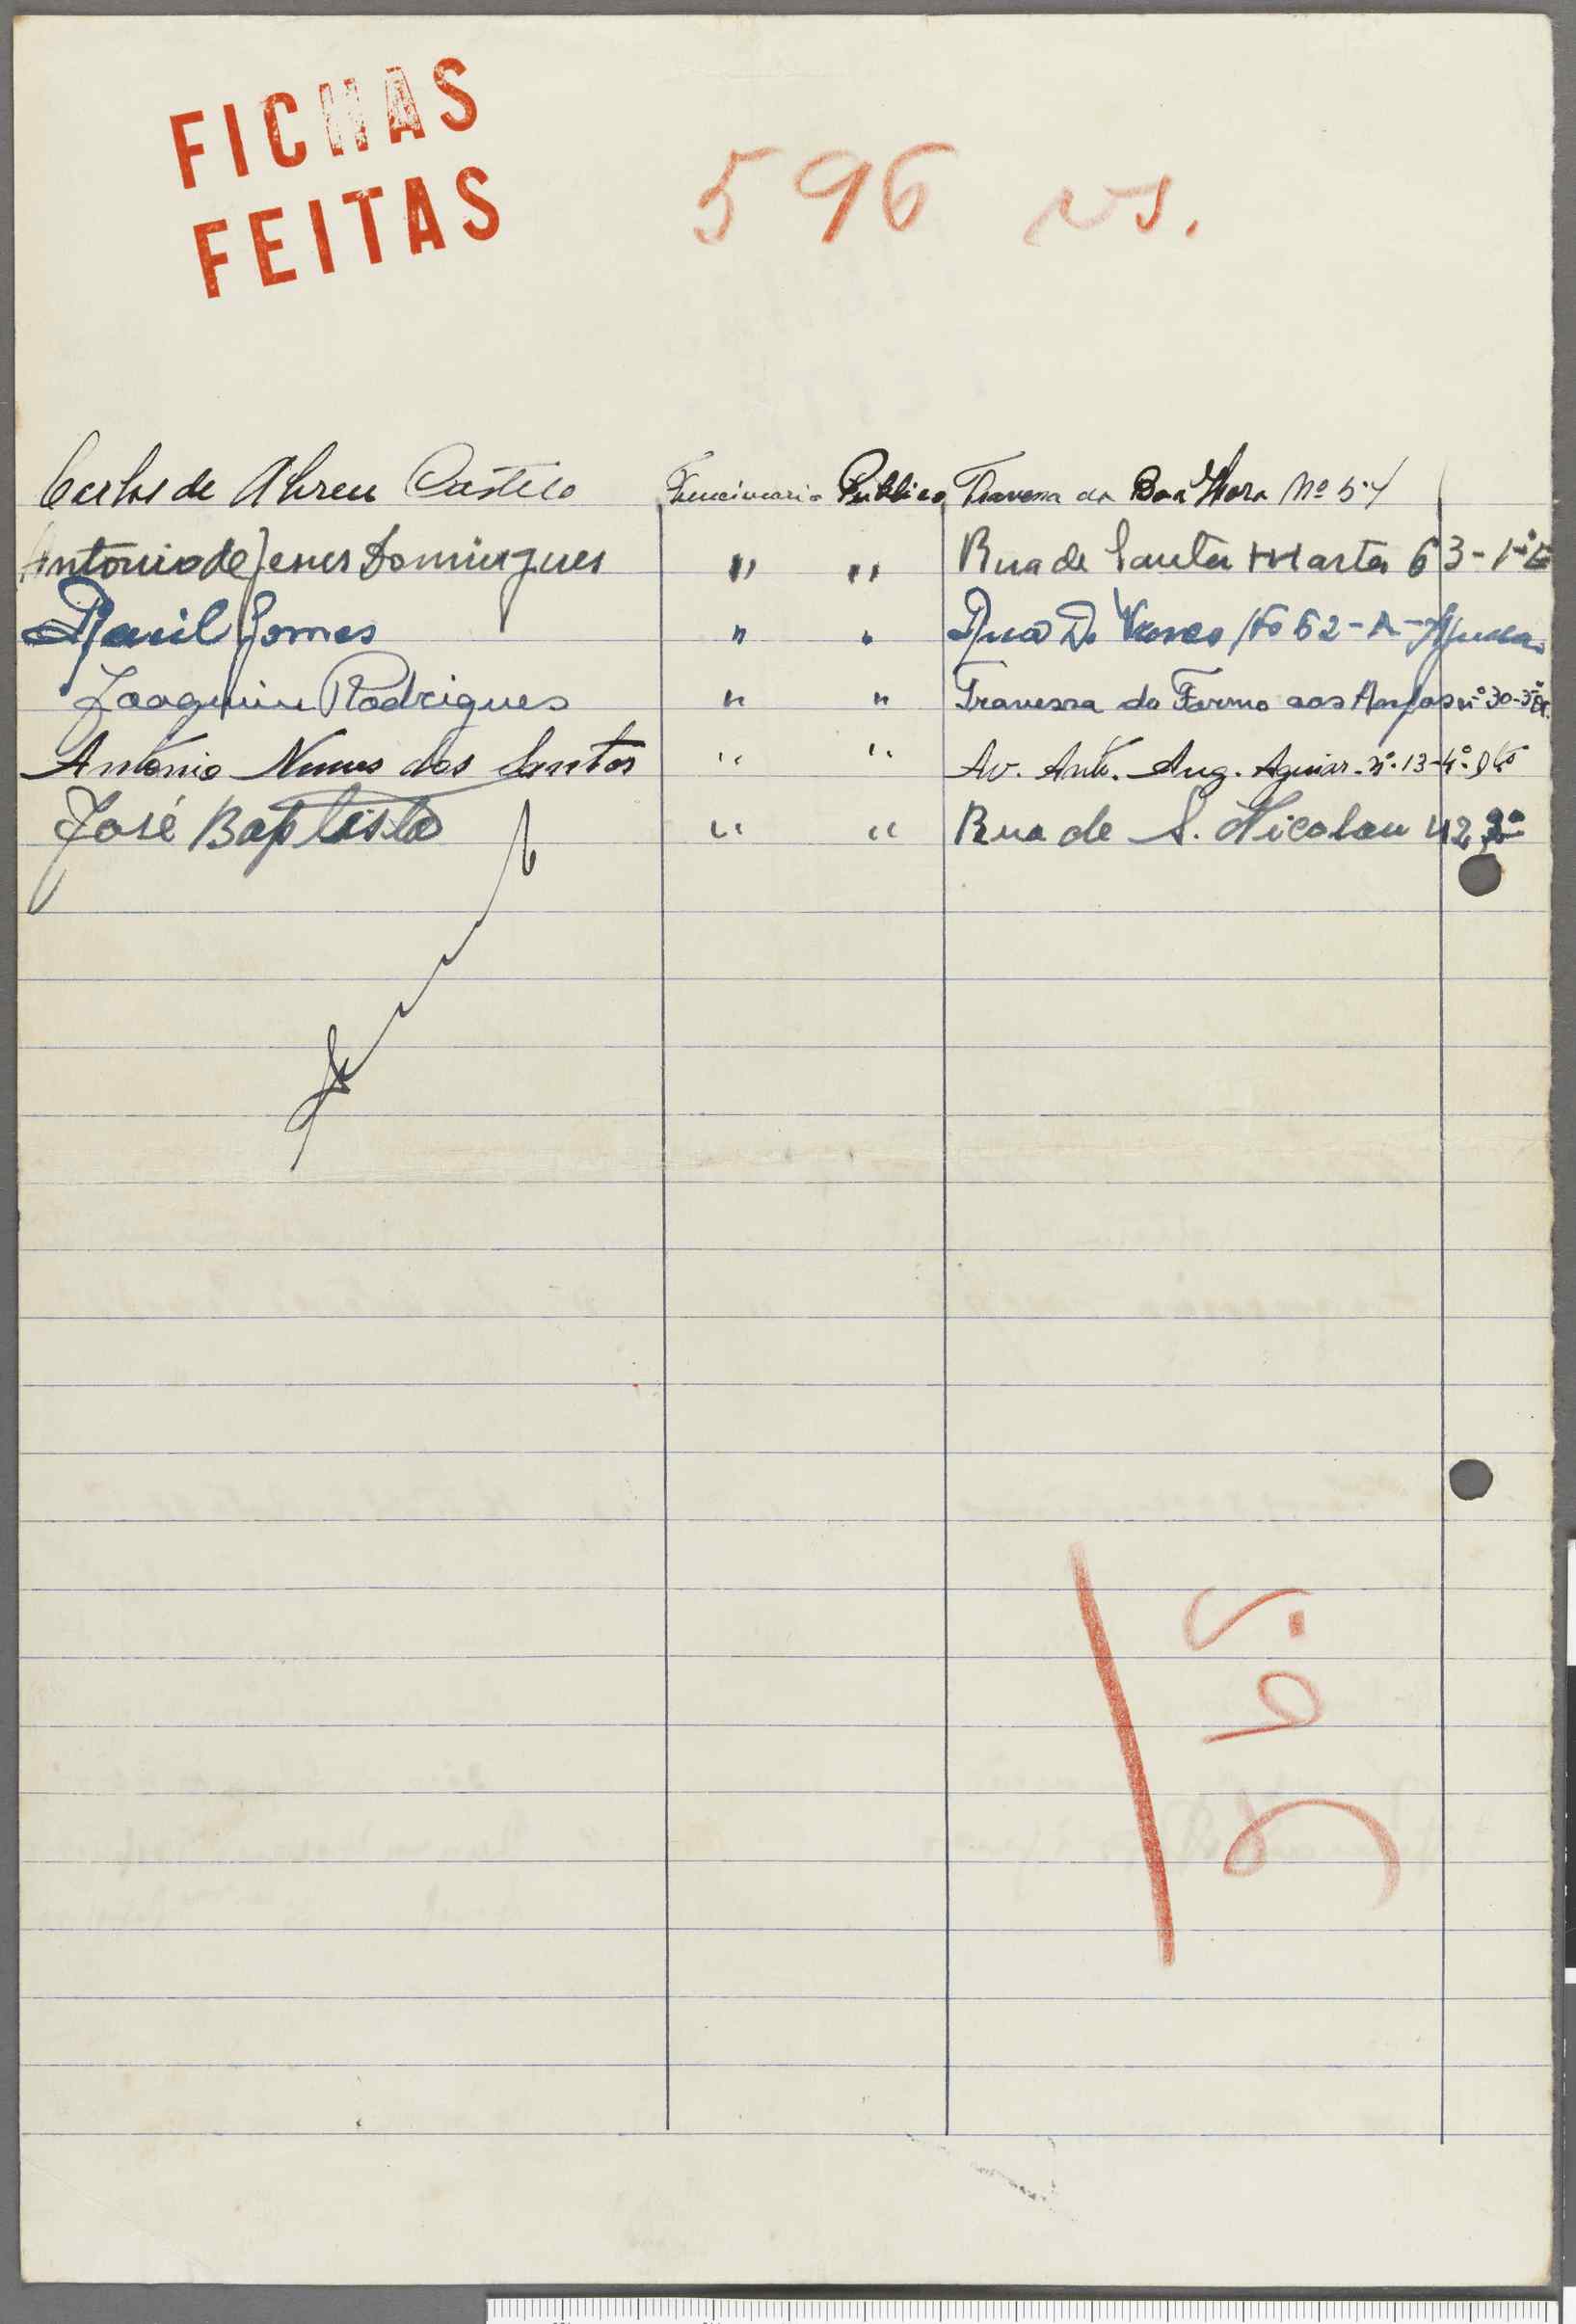 FICHAS
FEITAS
596 vs.
Carlos de Abreu Castelo Funcionario Publico Travessa da Boa Hora Nº 57
Antonio de Jesus Domingues " " Rua de Santa Marta 63-1º E
Raul Gomes " " Rua Do Vasco Nº 62-A-Ajuda
Joaquim Rodrigues " " Travessa do Forno aos Anjos nº 30-3º
António Nunes dos Santos " " Av. Antº. Aug. Aguiar-nº.13-4º-Dtº
José Baptista " " Rua de S. Nicolau 42 2º
596